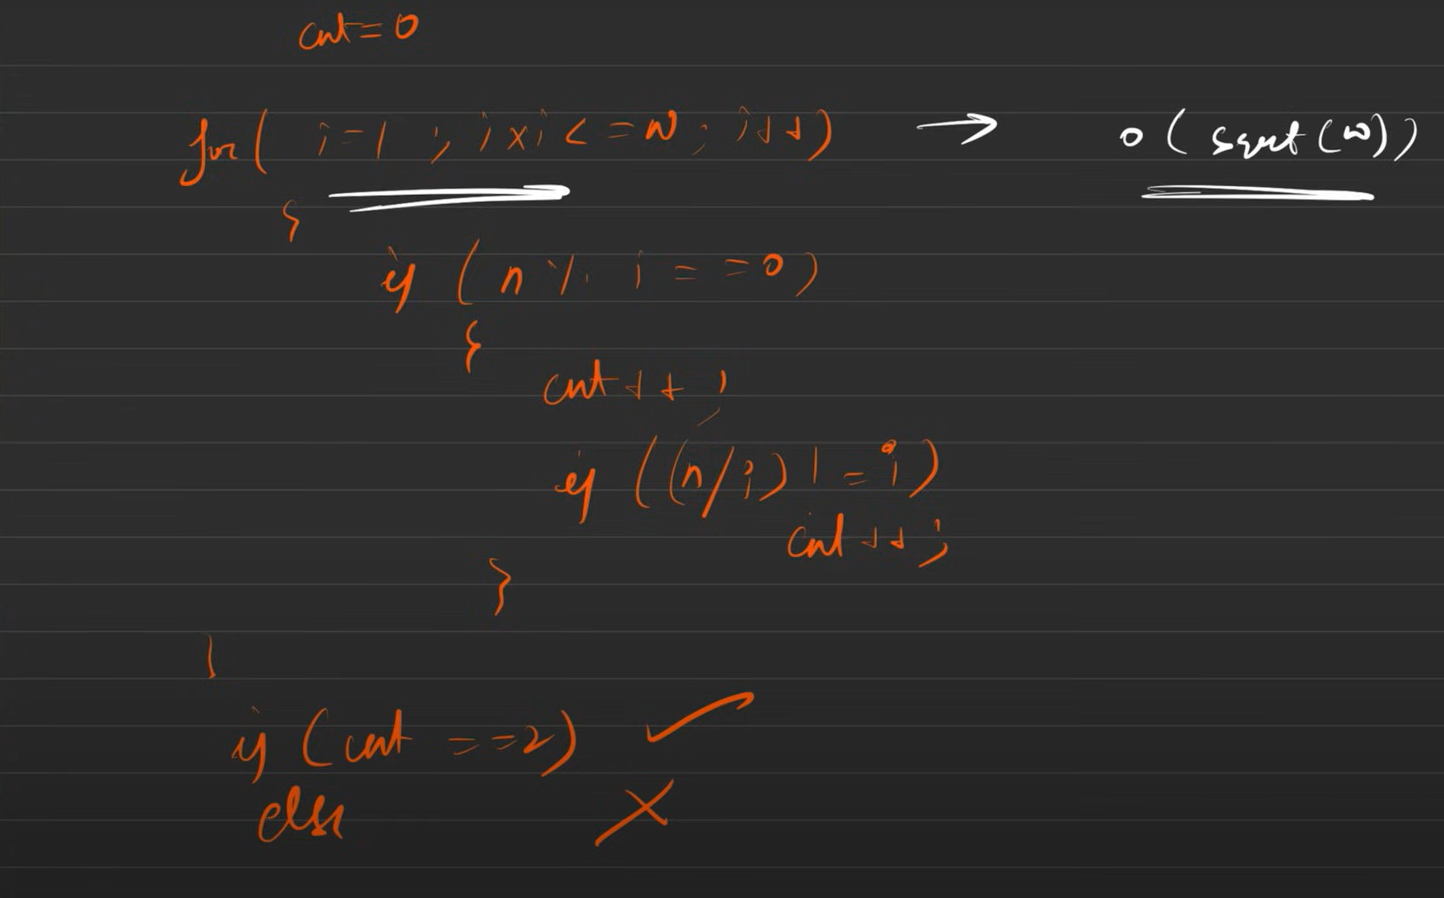 cnt=0
for( i=1 ; i×i<=N; i++) → O(sqrt(N))
{
if (n % i ==0)
{
cnt++;
if ((n/i) != i)
cnt++;
}
}
if (cnt ==2) ✓
else ×